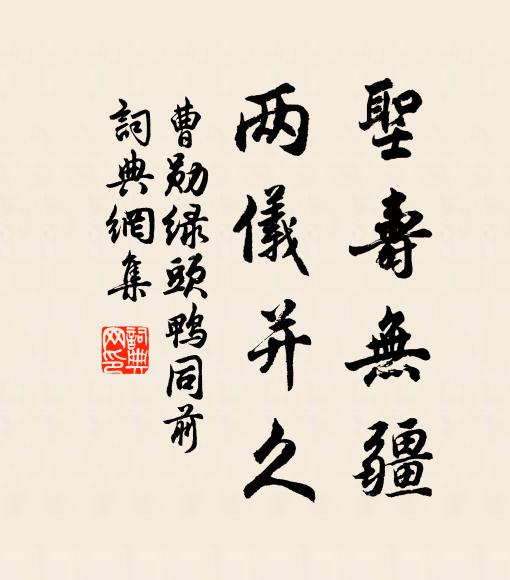 聖壽無疆
两儀并久
曹勛绿頭鴨同前
詞典網集
詞典
网印